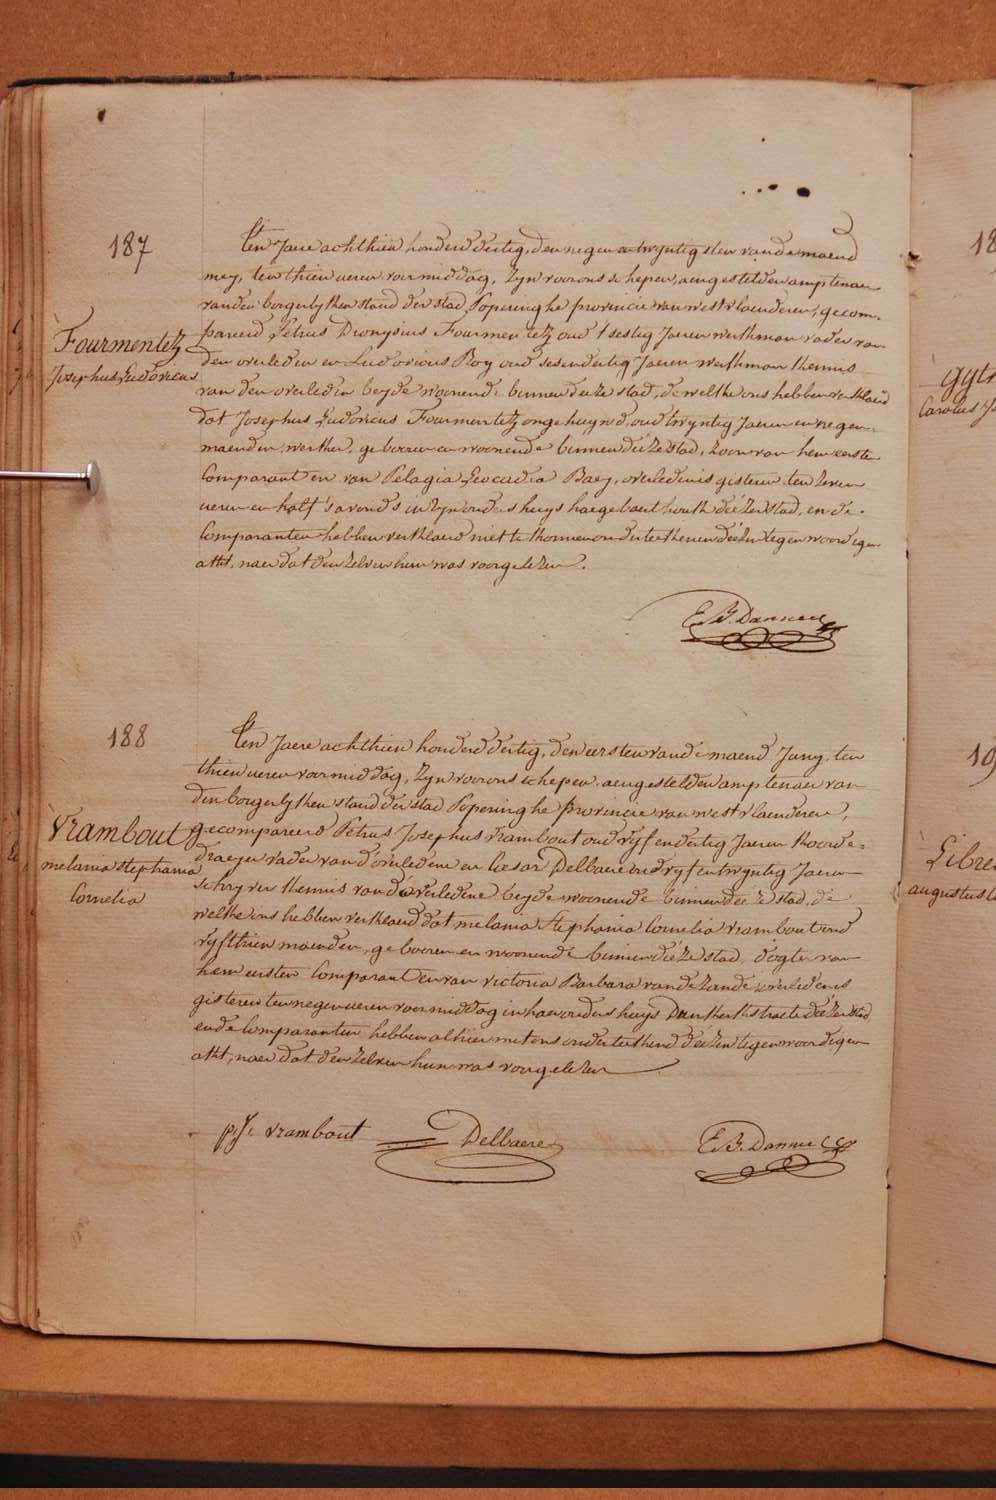 187
Fourmentetz
Josephus Ludovicus
Ten Jaere achthien honderd dertig, den negen en twyntigsten van de maend
mey, ten thien ueren voormiddag, Zyn voor ons schepen, aengestelden amptenaer
van den borgerlyken stand der stad Poperinghe provincie van westvlaenderen, gecom-
pareerd Petrus Dionysius Fourmentetz oud tsestig Jaeren werkman vader van
den overleden en Ludovicus Roy oud sesendertig Jaeren werkman kennis
van den overleden beyde woonende binnen deeze stad, de welke ons hebben verklaerd
dat Josephus Ludovicus Fourmentetz ongehuywd, oud twyntig Jaeren en negen
maenden, werker, gebooren en woonende binnen deeze stad, zoon van hem eersten
Comparant en van Pelagia Leocadia Baey, overleden is gisteren ten zeven
ueren en half 's avonds in zyn ouders huys haegebaerthoek deézer stad, en de
Comparanten hebben verklaerd niet te konnen onderteekenen deézen tegenwoordigen
akt, naer dat den zelven hun was voorgelezen.
E B. Danneel
188
Vrambout
melania stephania
Cornelia
Ten Jaere achthien honderd dertig, den eersten van de maend Juny, ten
thien ueren voormiddag, Zyn voor ons schepen, aengestelden amptenaer van
den borgerlyken stand der stad Poperinghe Provincie van westvlaenderen,
gecompareerd Petrus Josephus vrambout oud vyf en dertig Jaeren koorde=
draeyer vader van d'overledene en Caesar Delbaere oud vyf en twyntig Jaeren
schryver kennis van d'overledene beyde woonende binnen deéze stad, de
welke ons hebben verklaerd dat melania stephania Cornelia vrambout oud
vyfthien maenden, gebooren en woonende binnen deéze stad, dogter van
hem eersten Comparant en van victoria Barbara van de Zande overleden is
gisteren ten negen ueren voormiddag in haer ouders huys Dunkerkstraete deézer stad
en de Comparanten hebben alhier met ons onderteekend deézen tegenwoordigen
akt, naer dat den zelven hun was voorgelezen
p.j. vrambout
Delbaere
E B. Danneel